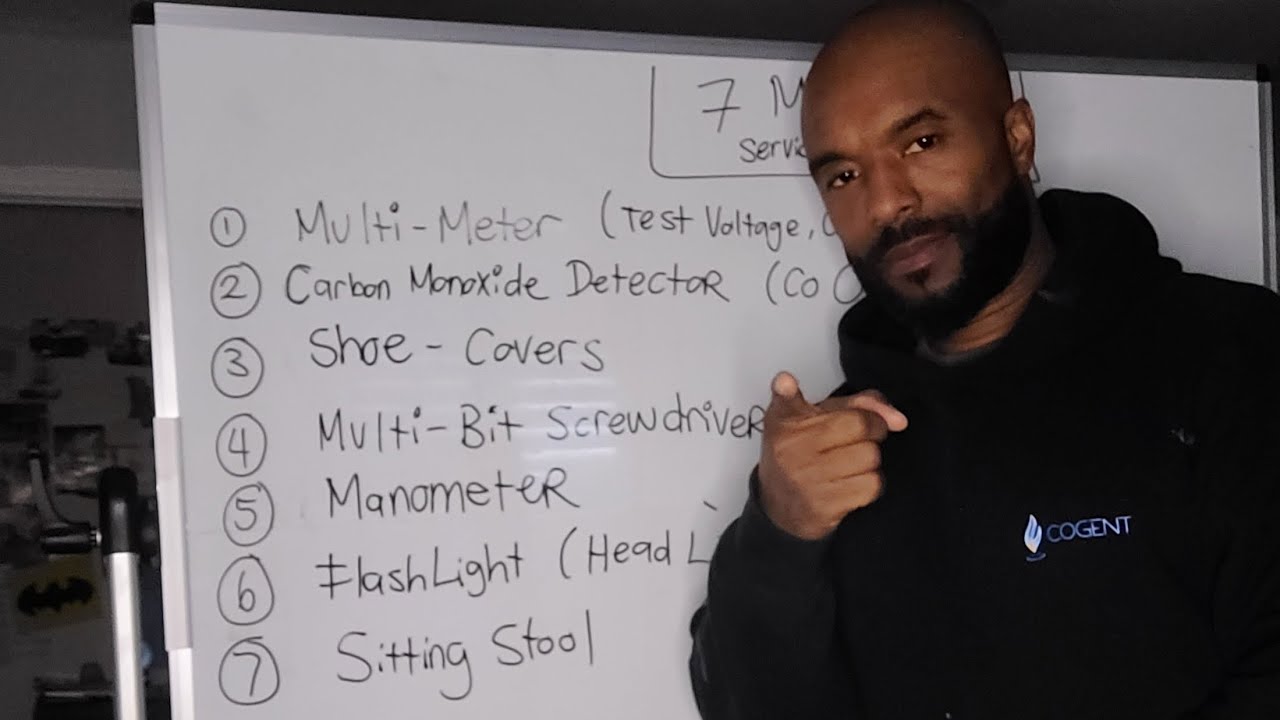 7
① Multi-Meter (Test Voltage,
② Carbon Monoxide Detector (CO
③ Shoe-Covers
④ Multi-Bit Screwdriver
⑤ Manometer
⑥ FlashLight (Head
⑦ Sitting Stool
COGENT